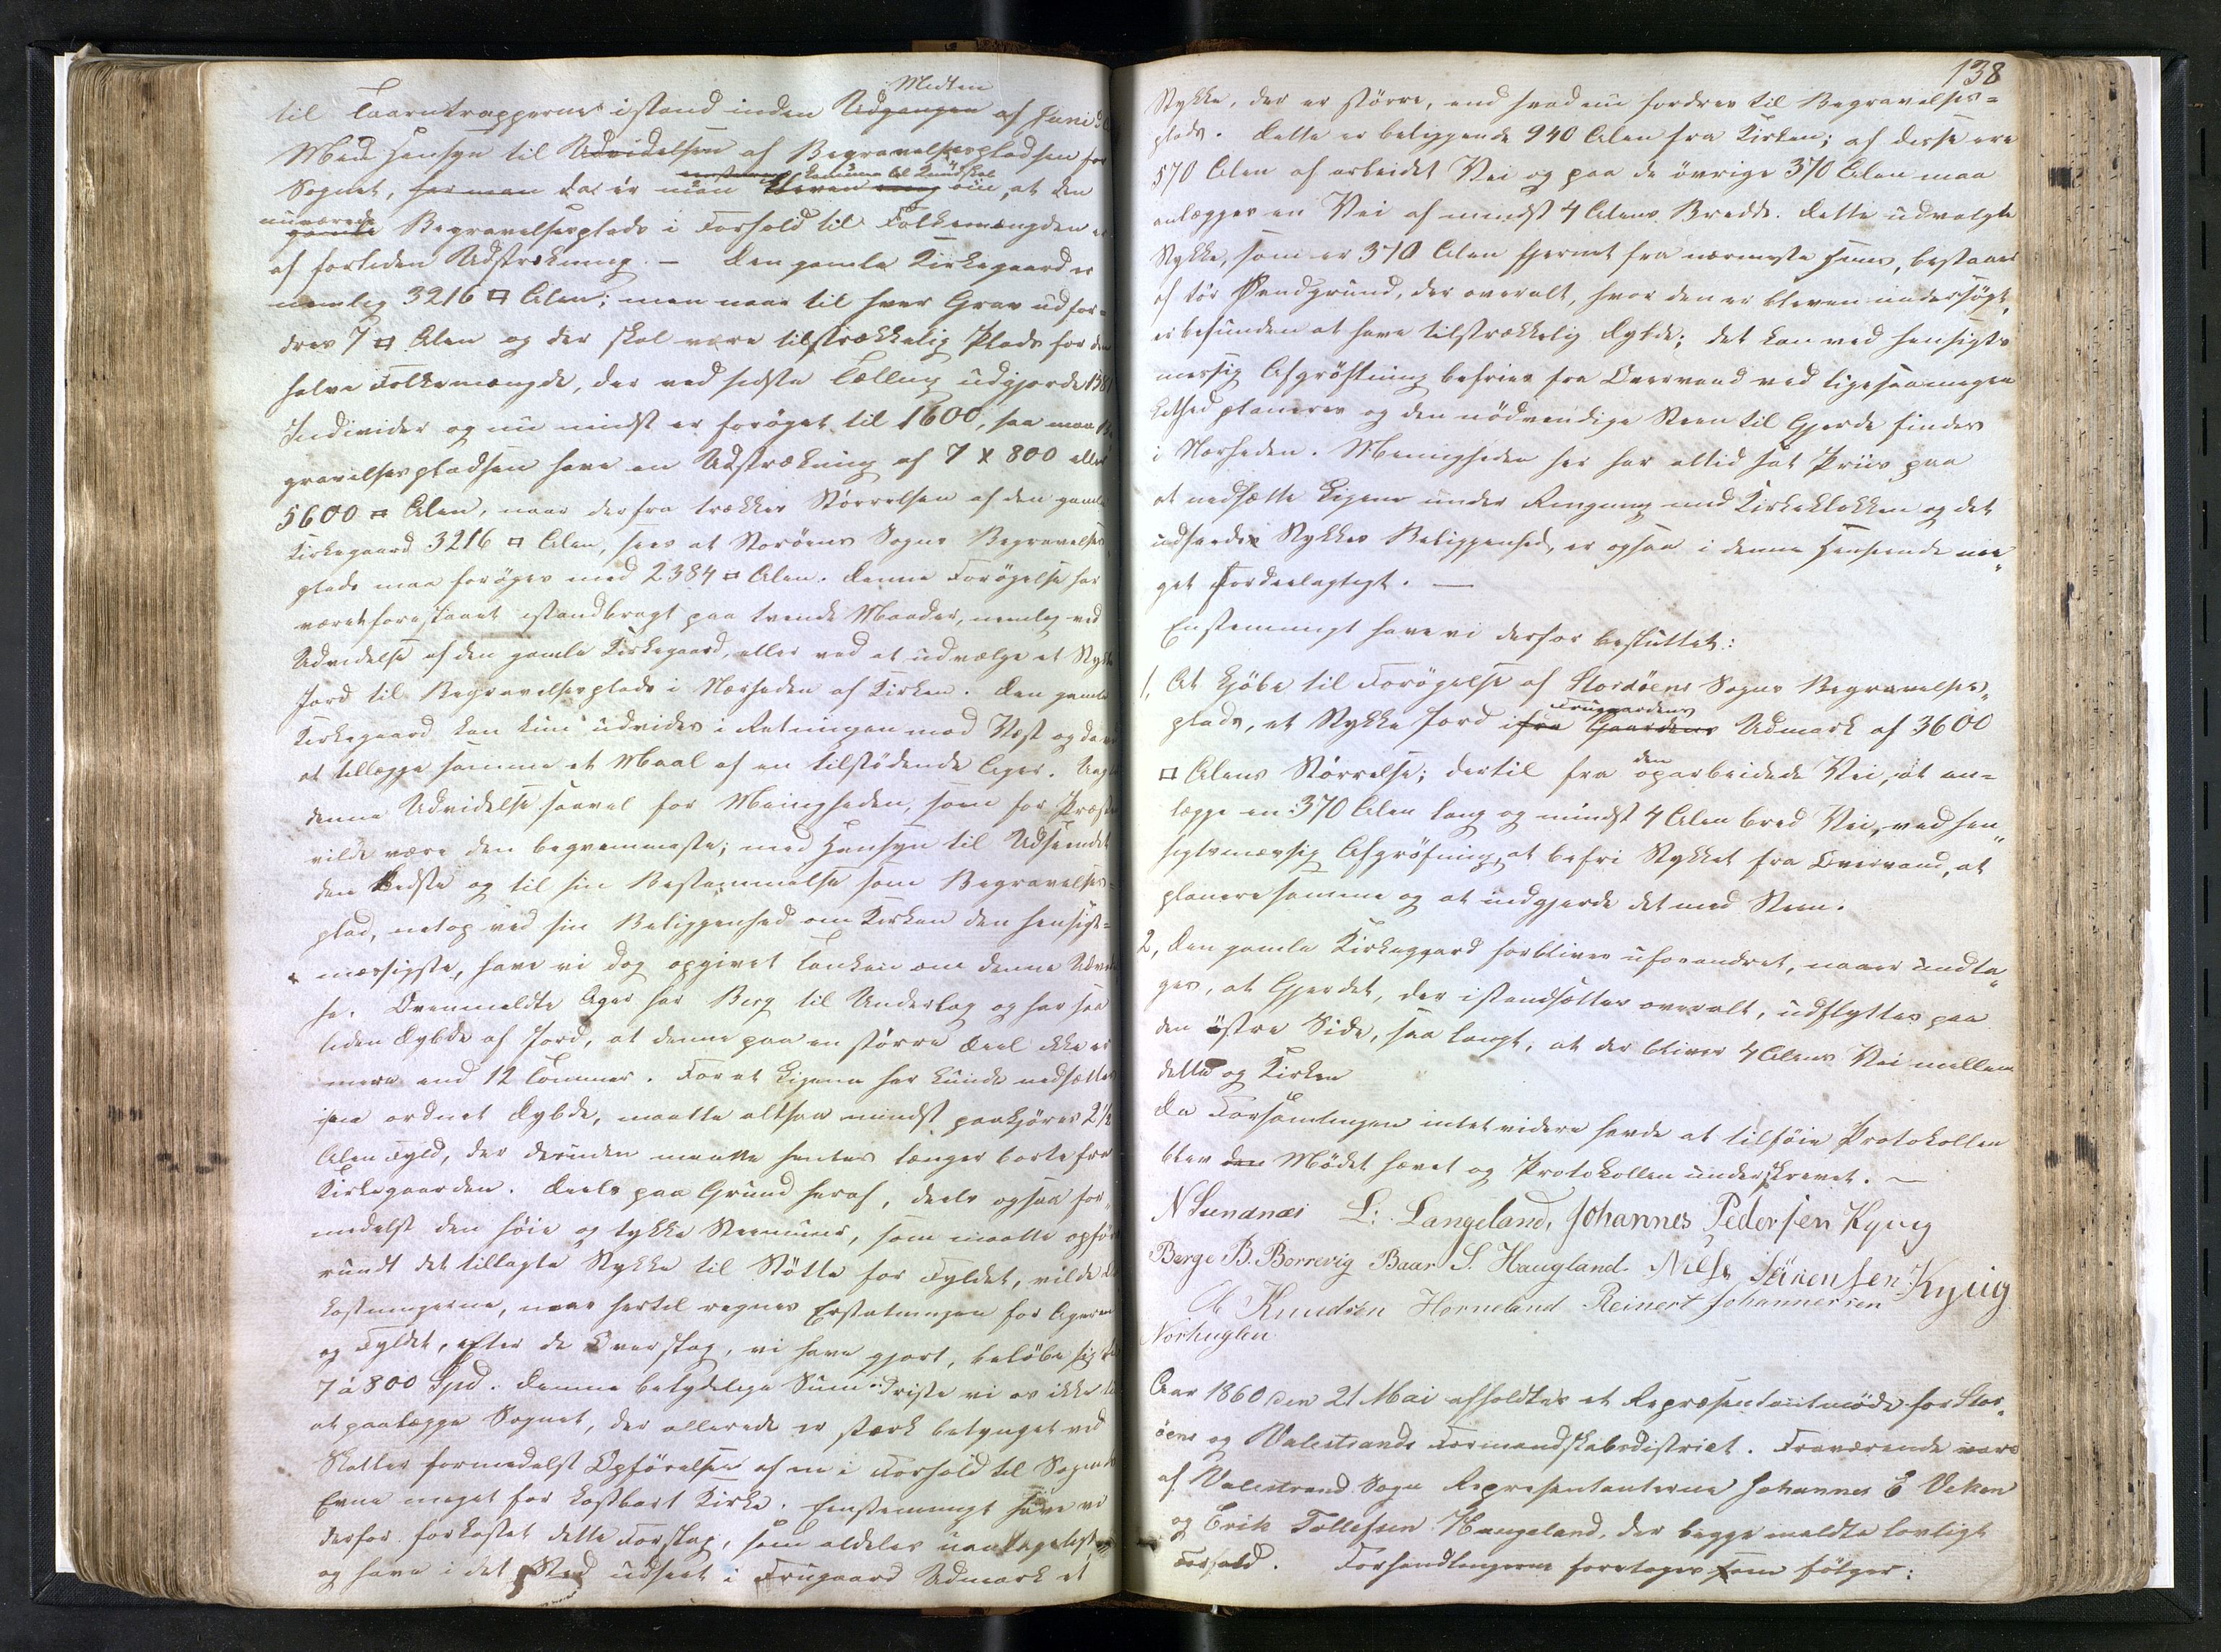 Midten
til Taarntrapperne istand inden Udgangen af Juni
Med Hensyn til Udvidelsen af Begravelsespladsen for
Sognet, har man da er man kommen til Kundskab om, at den
nuværende gamle Begravelsesplads i Forhold til Folkemængden er
af forliden Udstrekning. – Den gamle Kirkegaard er
nemlig 3216 □ Alen; men naar til hver Grav udfor-
dres 7 □ Alen og der skal være tilstrækkelig Plads for den
halve Folkemængde, der ved sidste Tælling udgjorde
Individer og nu mindst er forøget til 1600, saa maa Be-
gravelsespladsen have en Udstrækning af 7 x 800 eller
5600 □ Alen, naar derfra trækkes Størrelsen af den gamle
Kirkegaard 3216 □ Alen, sees at Storøens Sogns Begravelses-
plads maa forøges med 2384 □ Alen. Denne Forøgelse har
været foreslaaet istandbragt paa tvende Maader, nemlig ved
Udvidelse af den gamle Kirkegaard, eller ved at udvælge et Stykke
Jord til Begravelsesplads i Nærheden af Kirken. Den gamle
Kirkegaard kan kun udvides i Retningen mod Vest og da ved
at tillægge samme et Maal af en tilstødende Ager. Uagtet
denne Udvidelse saavel for Menigheden, som for Præsten
vilde være den beqvemmeste; med Hensyn til Udseendet
den bedste og til sin Bestemmelse som Begravelses-
plads, netop ved sin Beliggenhed om Kirken den hensigts-
mæssigste, have vi dog opgivet Tanken om denne Udvidel-
se. Ovenmeldte Ager har Berg til Underlag og har saa
liden Dybde af Jord, at denne paa en større Deel ikke er
mere end 12 Tommer. For at Ligene her kunde nedsættes
i sin ordnet Dybde, maatte altsaa mindst paakjøres 2½
Alen Fyld, der desuden maatte hentes længer borte fra
Kirkegaarden. Deels paa Grund heraf, deels ogsaa for-
medelst den høie og tykke Steenmuur, som maatte opføres
rundt det tillagte Stykke til Støtte for Fyldet, vilde
Kostningerne, naar hertil regnes Erstatningen for Ageren
og Fyldet, efter de Overslag, vi have gjort, beløbe sig til
7 à 800 Spd. Denne betydelige Sum driste vi os ikke til
at paalægge Sognet, der allerede er stærk betynget ved
Skatter formedelst Opførelsen af en i Forhold til Sognets
Evne meget for kostbart Kirke. Eenstemmigt have vi
derfor forkastet dette Forslag, som aldeles uantageligt
og have i det Sted udseet i Frugaard Udmark et
138
Stykke, der er større, end hvad nu fordres til Begravelses-
plads. Dette er beliggende 940 Alen fra Kirken; af disse ere
570 Alen af arbeidet Vei og paa de øvrige 370 Alen maa
anlægges en Vei af mindst 4 Alens Bredde. Dette udvalgte
Stykke, som er 370 Alen fjernet fra nærmeste Huus, bestaaer
af tør Sandgrund, der overalt, hvor den er bleven undersøgt,
er befunden at have tilstrækkelig Dybde; det kan ved hensigts-
mæssig Afgrøftning befries fra Overvand ved ligesaamegen
Lethed planeres og den nødvendige Steen til Gjerde findes
i Nærheden. Menigheden her har altid sat Priis paa
at nedsætte Ligene under Ringning med Kirkeklokken og det
udseede Stykkes Beliggenhed, er ogsaa i denne Henseende me-
get fordeelagtigt. —
Enstemmigt have vi derfor besluttet:
1, At kjøbe til Forøgelse af Stordøens Sogns Begravelses-
plads, et Stykke Jord i fra Gaardens Frugaardens Udmark af 3600
□ Alens Størrelse; dertil fra den oparbeidede Vei, at an-
lægge en 370 Alen lang og mindst 4 Alen bred Vei, ved hen-
sigtsmæssig Afgrøfning, at befri Stykket fra Overvand, at
planere samme og at indgjerde det med Steen.
2, Den gamle Kirkegaard forbliver uforandret, naaer undta-
ges, at Gjerdet, der istandsættes overalt, udflyttes paa
den østre Side, saa langt, at der bliver 4 Alens Vei mellem
dette og Kirken
Da Forsamlingen intet videre havde at tilføie Protokollen
blev den Mødet hævet og Protokollen underskrevet. —
N Sundnæs L: Langeland, Johannes Pedersen Kyvig
Børge B. Borrevig Baar S. Haugland. Nils Sørensen Kyvig
O Knudsen Horneland Reinert Johannessen
Norhuglen
Aar 1860 den 21 Mai afholdtes et Repræsentantmøde for Stor-
øens og Valestrands Formandskabsdistrict. Fraværende vare
af Valestrand Sogn Repræsentanterne Johannes E Veken
og Erik Tollefsen Haugeland, der begge meldte lovligt
Forfald. Forhandlingerne foretoges som følger: